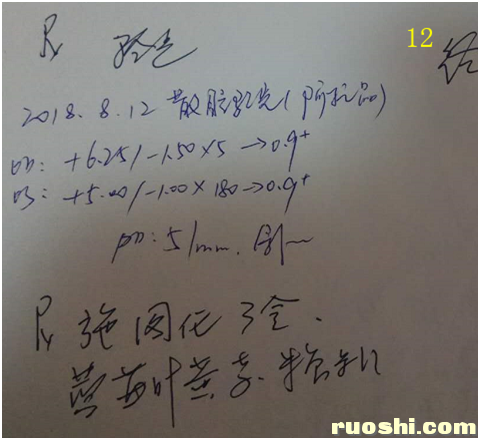 12
Rx 验光
2018.8.12 散瞳验光(阿托品)
OD: +6.25/-1.50×5→0.9+
OS: +5.00/-1.00×180→0.9+
PD: 51mm.
Rx 施图伦 3盒.
蓝莓叶黄素.
ruoshi.com